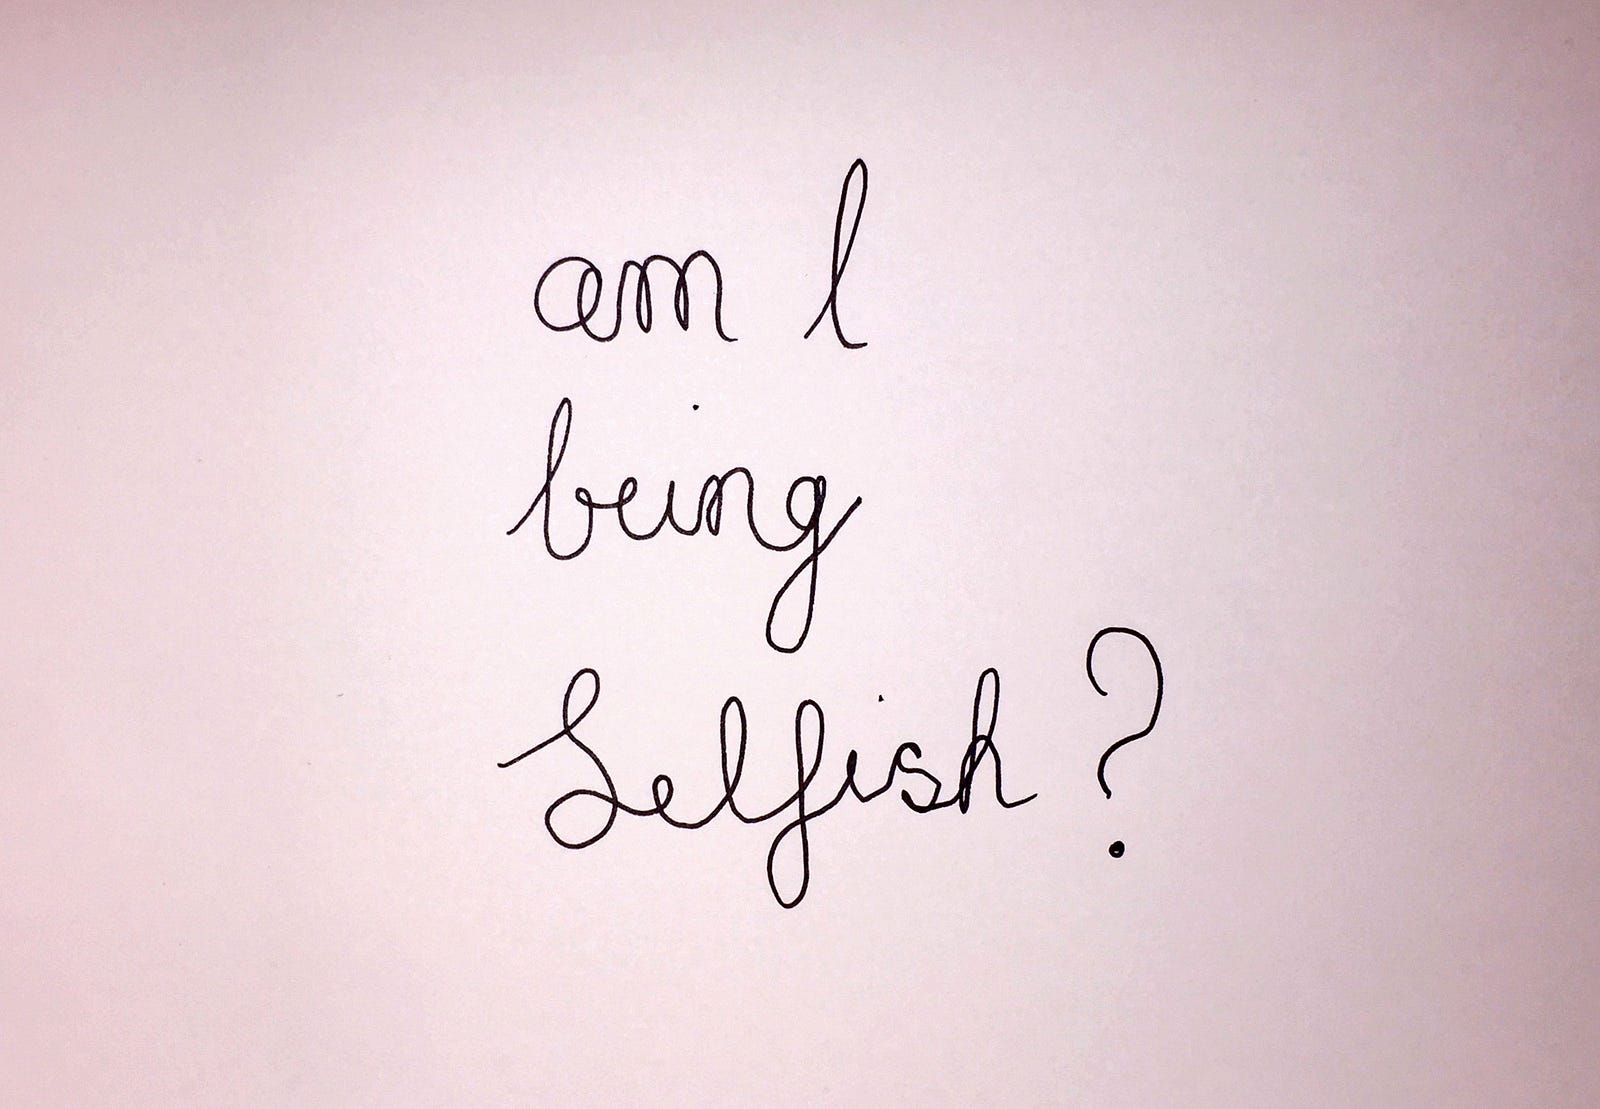 am I
being
Selfish ?